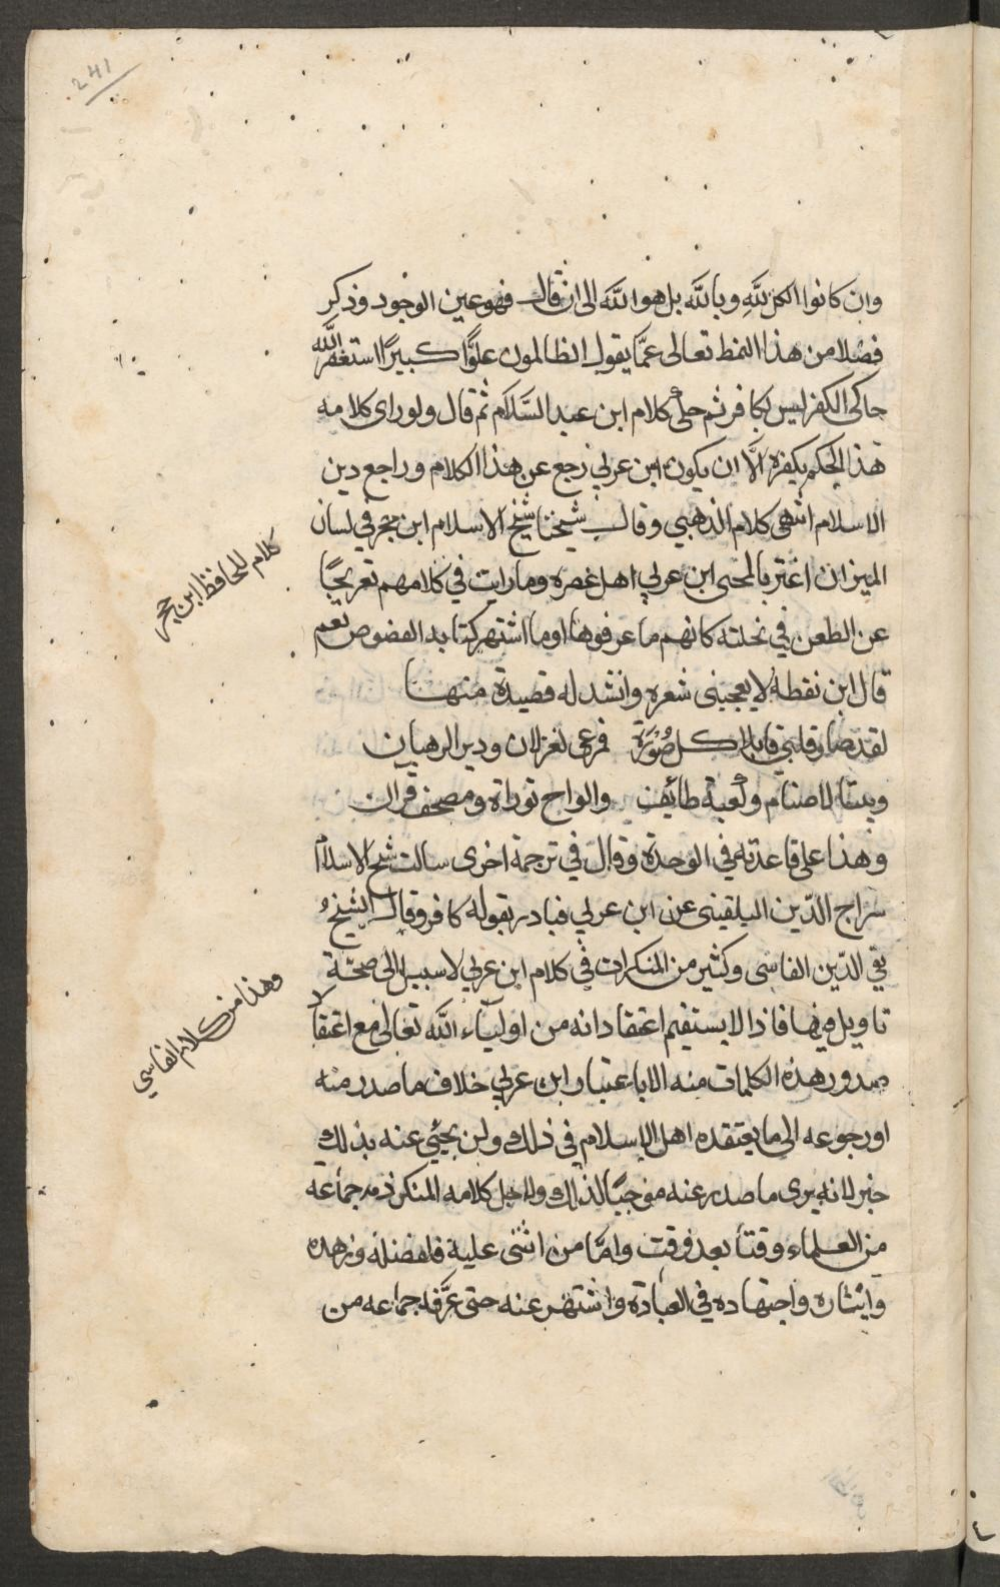 241
وان كانوا الكل لله وبالله بل هو الله الى ان قال فهو عين الوجود وذكر
فصلا من هذا النمط تعالى عمّا يقول الظالمون علوًّا كبيرًا استغفر الله
حاكى الكفر ليس بكافر ثم حكى كلام ابن عبد السّلام ثم قال ولو راى كلامه
هذا لحكم بكفره الّا ان يكون ابن عربي رجع عن هذا الكلام وراجع دين
الاسلام انتهى كلام الذهبي وقال شيخنا شيخ الاسلام ابن حجر في لسان
الميزان اغتر بالمحى ابن عربي اهل عصره وما رايت في كلامهم تعريجًا
عن الطعن في نحلته كانهم ما عرفوها او ما اشتهر كتابه الفصوص نعم
قال ابن نقطة لا يعجبنى شعره وانشد له قصيدة منها
لقد صار قلبي قابلا كل صُوْرَة فمرعى لغزلان ودير الرهبان
وبيتا لاصنام وكعبة طائف والواح توراة ومصحف قران
وهذا على قاعدته في الوحدة وقال في ترجمة اخرى سالت شيخ الاسلام
سراج الدّين البلقينى عن ابن عربي فبادر بقوله كافر وقال الشيخ
تقي الدّين الفاسى وكثير من المنكرات في كلام ابن عربي لا سبيل الى صحّة
تاويل فيها فاذا لا يستقيم اعتقاد انه من اوليآء الله تعالى مع اعتقاد
صدور هذه الكلمات منه الا باعتبار ابن عربي خلاف ما صدر منه
او رجوعه الى ما يعتقده اهل الاسلام في ذلك ولن يجئي عنه بذلك
خبر لانه يرى ما صدر عنه موجبًا لذلك ولاجل كلامه المنكر ذمه جماعة
من العلماء وقتًا بعد وقت وامّا من اثنى عليه فلفضله وزهده
وايثاره واجتهاده في العبادة واشتهر عنه حتى عرّفه جماعة من
كلام للحافظ ابن حجر
وهذا من كلام الفاسي